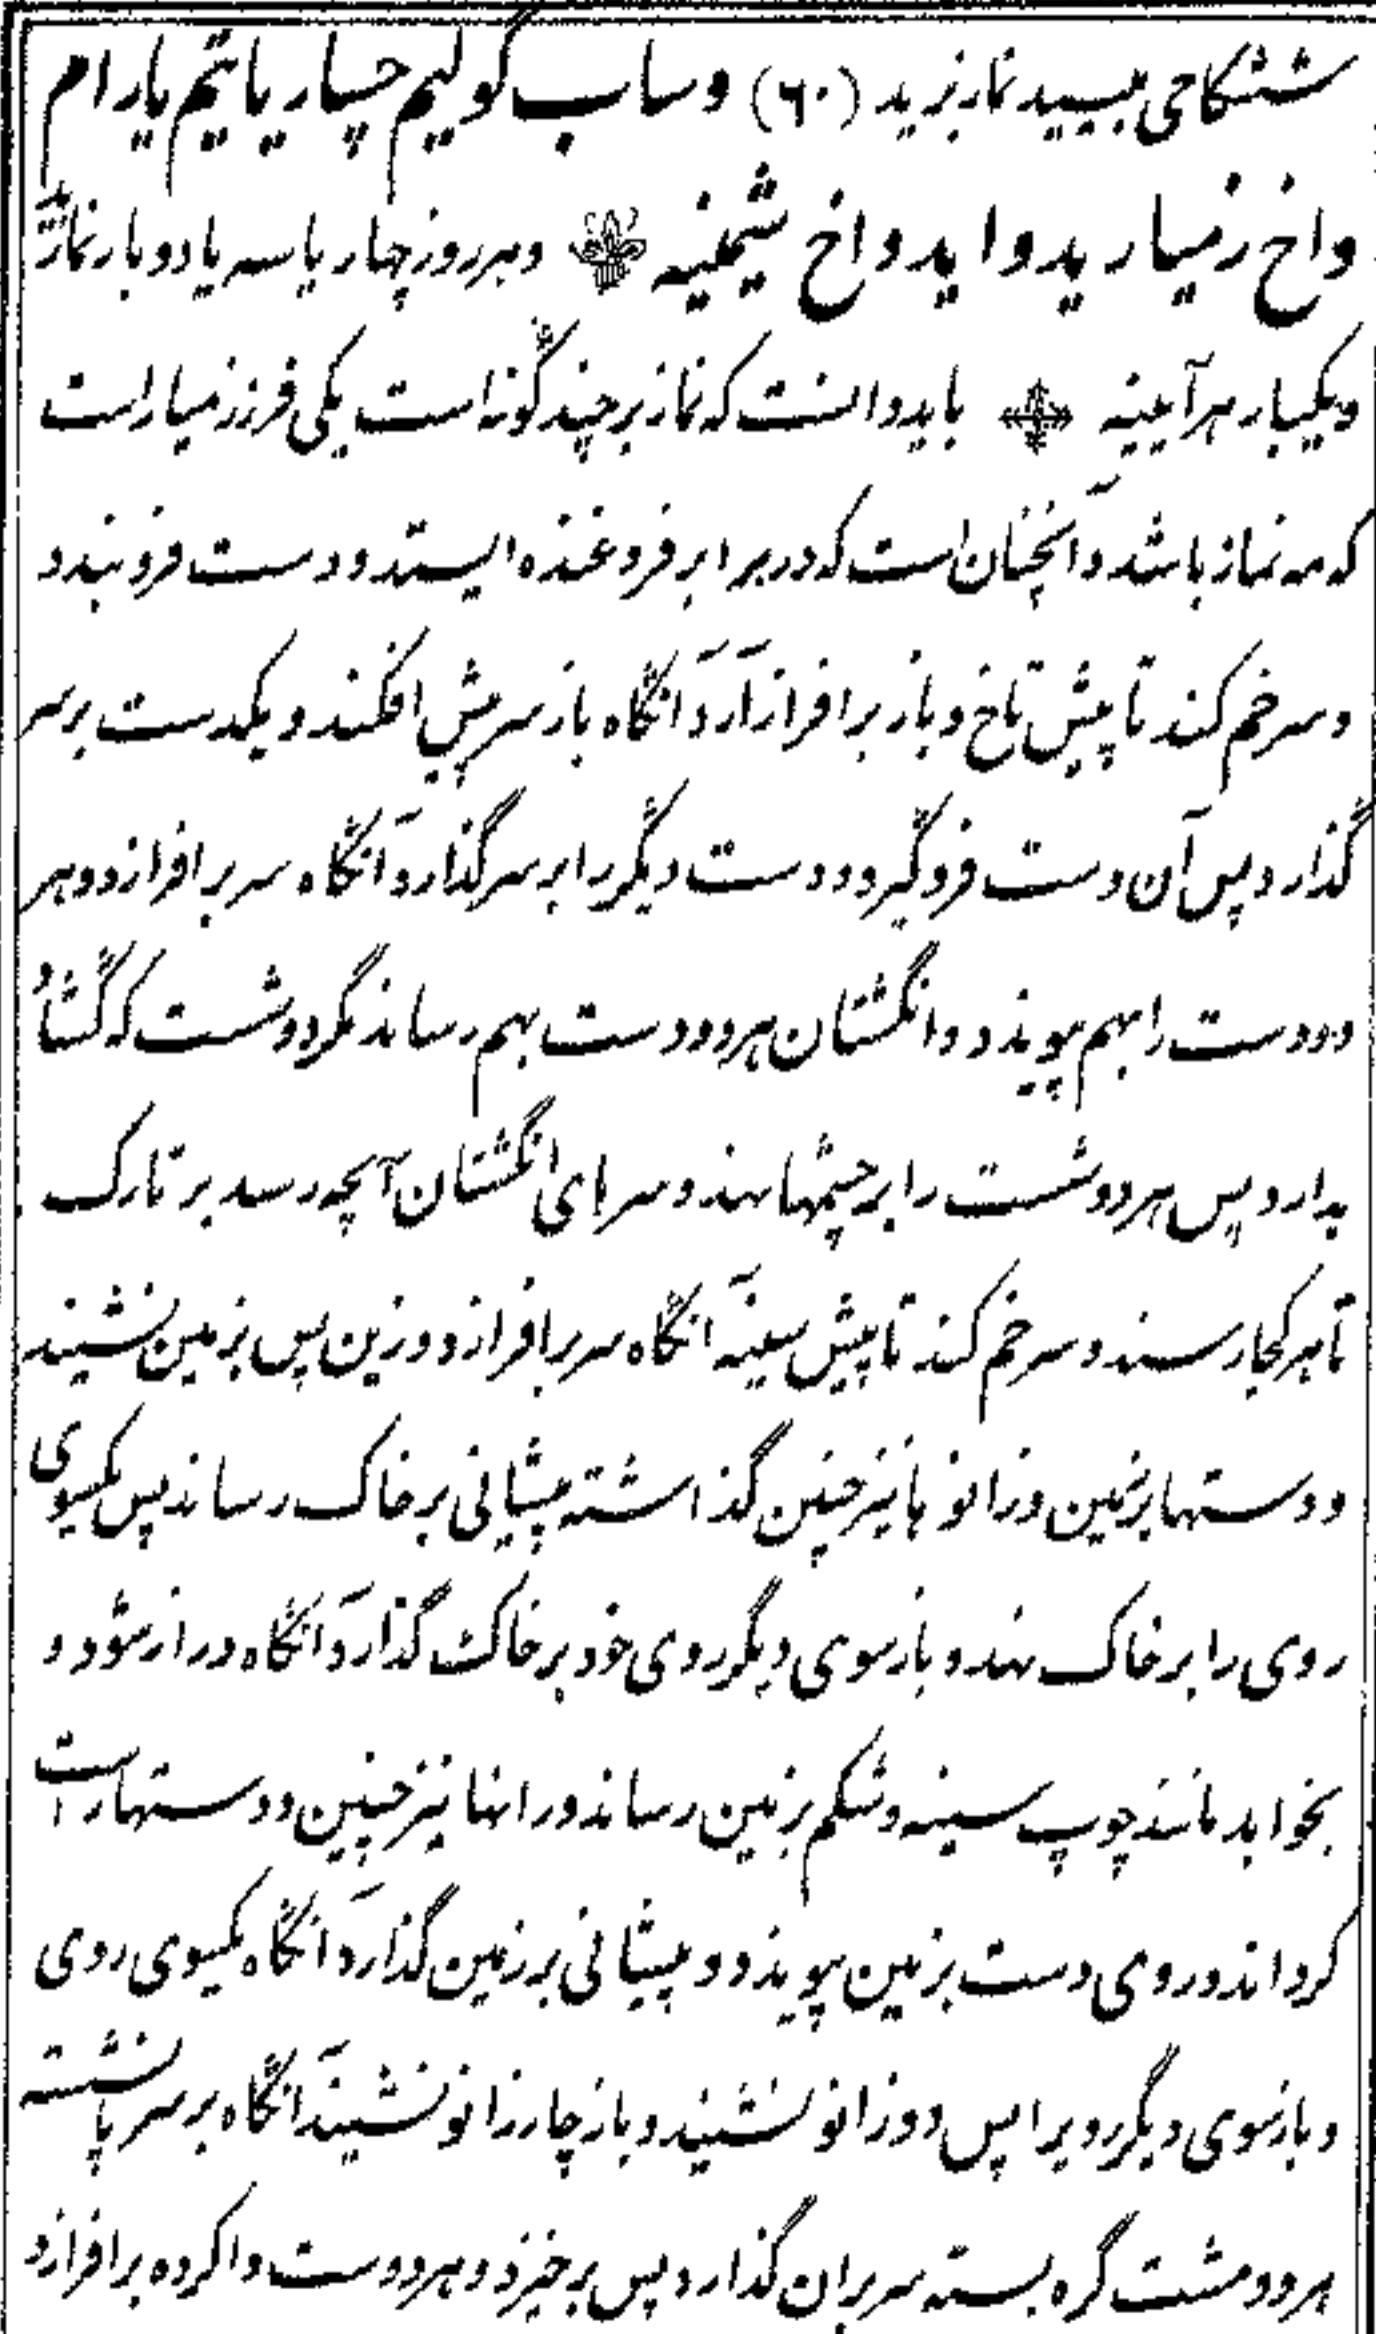 ششکاحی بیسید نماز برید (٦٠) و ساب کولیم چسار یا تیم یارام
واخ زمیار ید و ایدواخ شیمنیه و هر روز چهار یا سه یا دو بار نماز کنید
و یکبار هر آیینه باید دانست که نماز بر چند گونه است یکی فرززمیار است
که مه نماز باشد و آنچنان است که در برابر فروغنده ایستد و دست فرو بندد
و سر خم کند تا پیش تاخ و باز بر افراز آرد آنگاه باز سر پیش افکند و یکدست بر سر
گذارد پس آن دست فرو گیرد و دست دیگر را بر سر گذارد آنگاه سر بر افرازد و هر
دو دست را بهم پیوندد و انگشتان هر دو دست بهم رساند مگر دو شست که گشاد
بدارد پس هر دو شست را بر چشمها نهد و سرهای انگشتان آنچه رسد بر تارک
تا هر کجا رسند و سر خم کند تا پیش سینه آنگاه سر بر افرازد و زین پس بزمین نشیند
و دستها بزمین و زانوها نیز چنین گذاشته پیشانی بر خاک رساند پس یکسوی
روی را بر خاک نهد و باز سوی دیگر روی خود بر خاک گذارد آنگاه دراز شود و
بخوابد مانند چوب سینه و شکم بزمین رساند و رانها نیز چنین و دستها راست
کرداند و روی دست بزمین پیوندد و پیشانی بر زمین گذارد آنگاه یکسوی روی
و باز سوی دیگر رو یرا پس دو زانو نشیند و باز چار زانو نشیند آنگاه بر سر پا نشسته
هر دو مشت گره بسته سر بران گذارد پس برخیزد و هر دو دست وا کرده بر افرازد